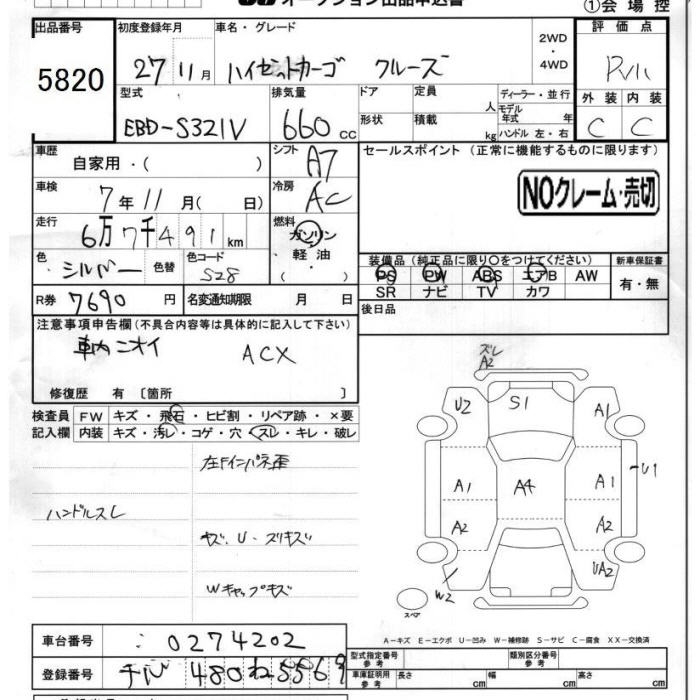 オークション出品申込書
①会場控
出品番号 初度登録年月 車名・グレード 2WD・4WD 評価点
5820 27 11月 ハイゼットカーゴ クルーズ
型式 排気量 ドア 定員 人 ディーラー・並行 外装 内装
モデル年式 年
EBD-S321V 660cc 形状 積載 kg ハンドル 左・右 C C
車歴 自家用・( ) シフト A7 セールスポイント (正常に機能するものに限ります)
車検 7年11月(日) 冷房 AC NOクレーム・売切
走行 6万7千491km 燃料 ガソリン・軽油・( )
色 シルバー 色替 色コード S28
装備品(純正品に限り○をつけてください) 新車保証書
PS PW ABS エアB AW 有・無
SR ナビ TV カワ
R券 7690円 名変通知期限 月 日 後日品
注意事項申告欄(不具合内容等は具体的に記入して下さい)
車内ニオイ ACX
修復歴 有 〔箇所 〕
検査員 FW キズ・飛石・ヒビ割・リペア跡・×要
記入欄 内装 キズ・汚レ・コゲ・穴・スレ・キレ・破レ
ズレ
A2
U2 S1 A1
A1 A4 A1 U1
A2 A2
W2 UA2
スペア
左Fインパネ歪
ハンドルスレ
キズ・U・スリキズ
Wキャップキズ
A-キズ E-エクボ U-凹み W-補修跡 S-サビ C-腐食 XX-交換済
車台番号 : 0274202 型式指定番号 参考 類別区分番号 参考
登録番号 480わ5569 車庫証明用 参考 長さ cm 幅 cm 高さ cm